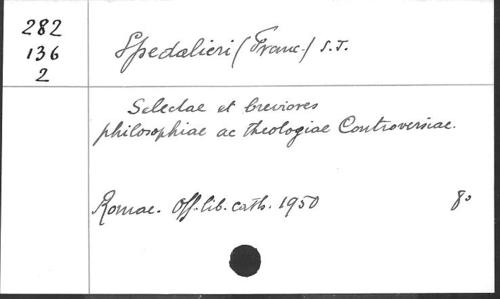 282
136
2
Spedalieri (Franc.) S.J.
Selectae et breviores
philosophiae ac theologiae Controversiae.
Romae. Off. lib. cath. 1950 8o